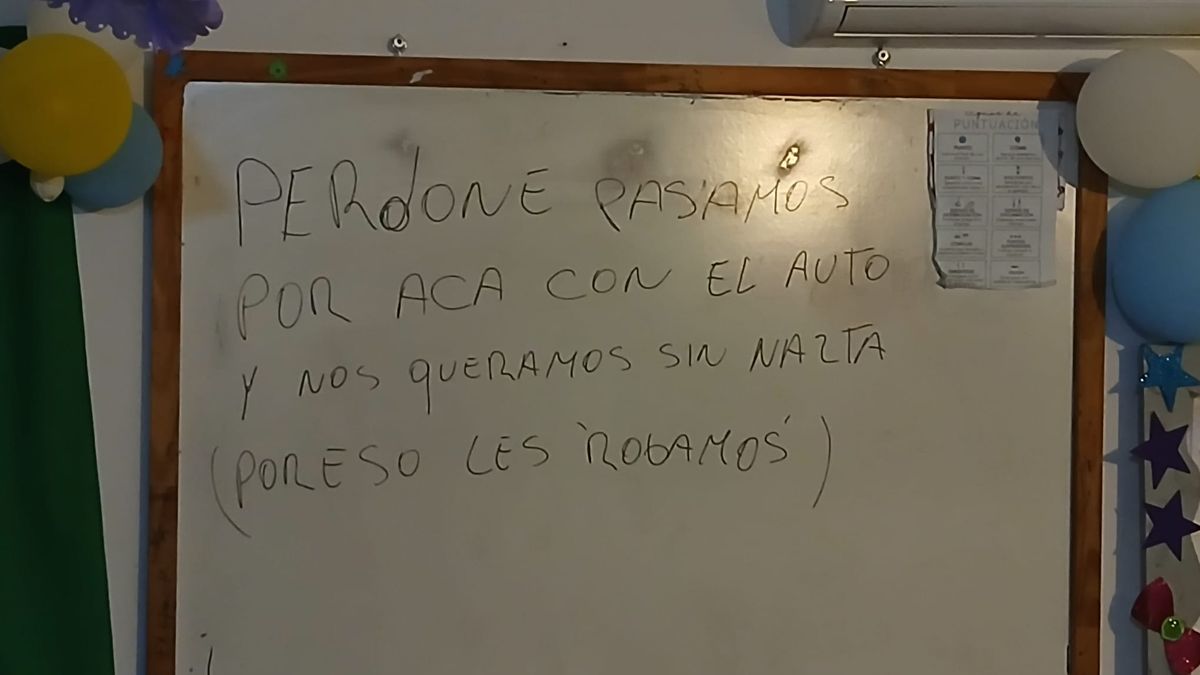 PERdONE PASAMOS
POR ACA CON EL AUTO
Y NOS QUERAMOS SIN NAZTA
(POR ESO LES 'ROGAMOS')
PUNTUACIÓN